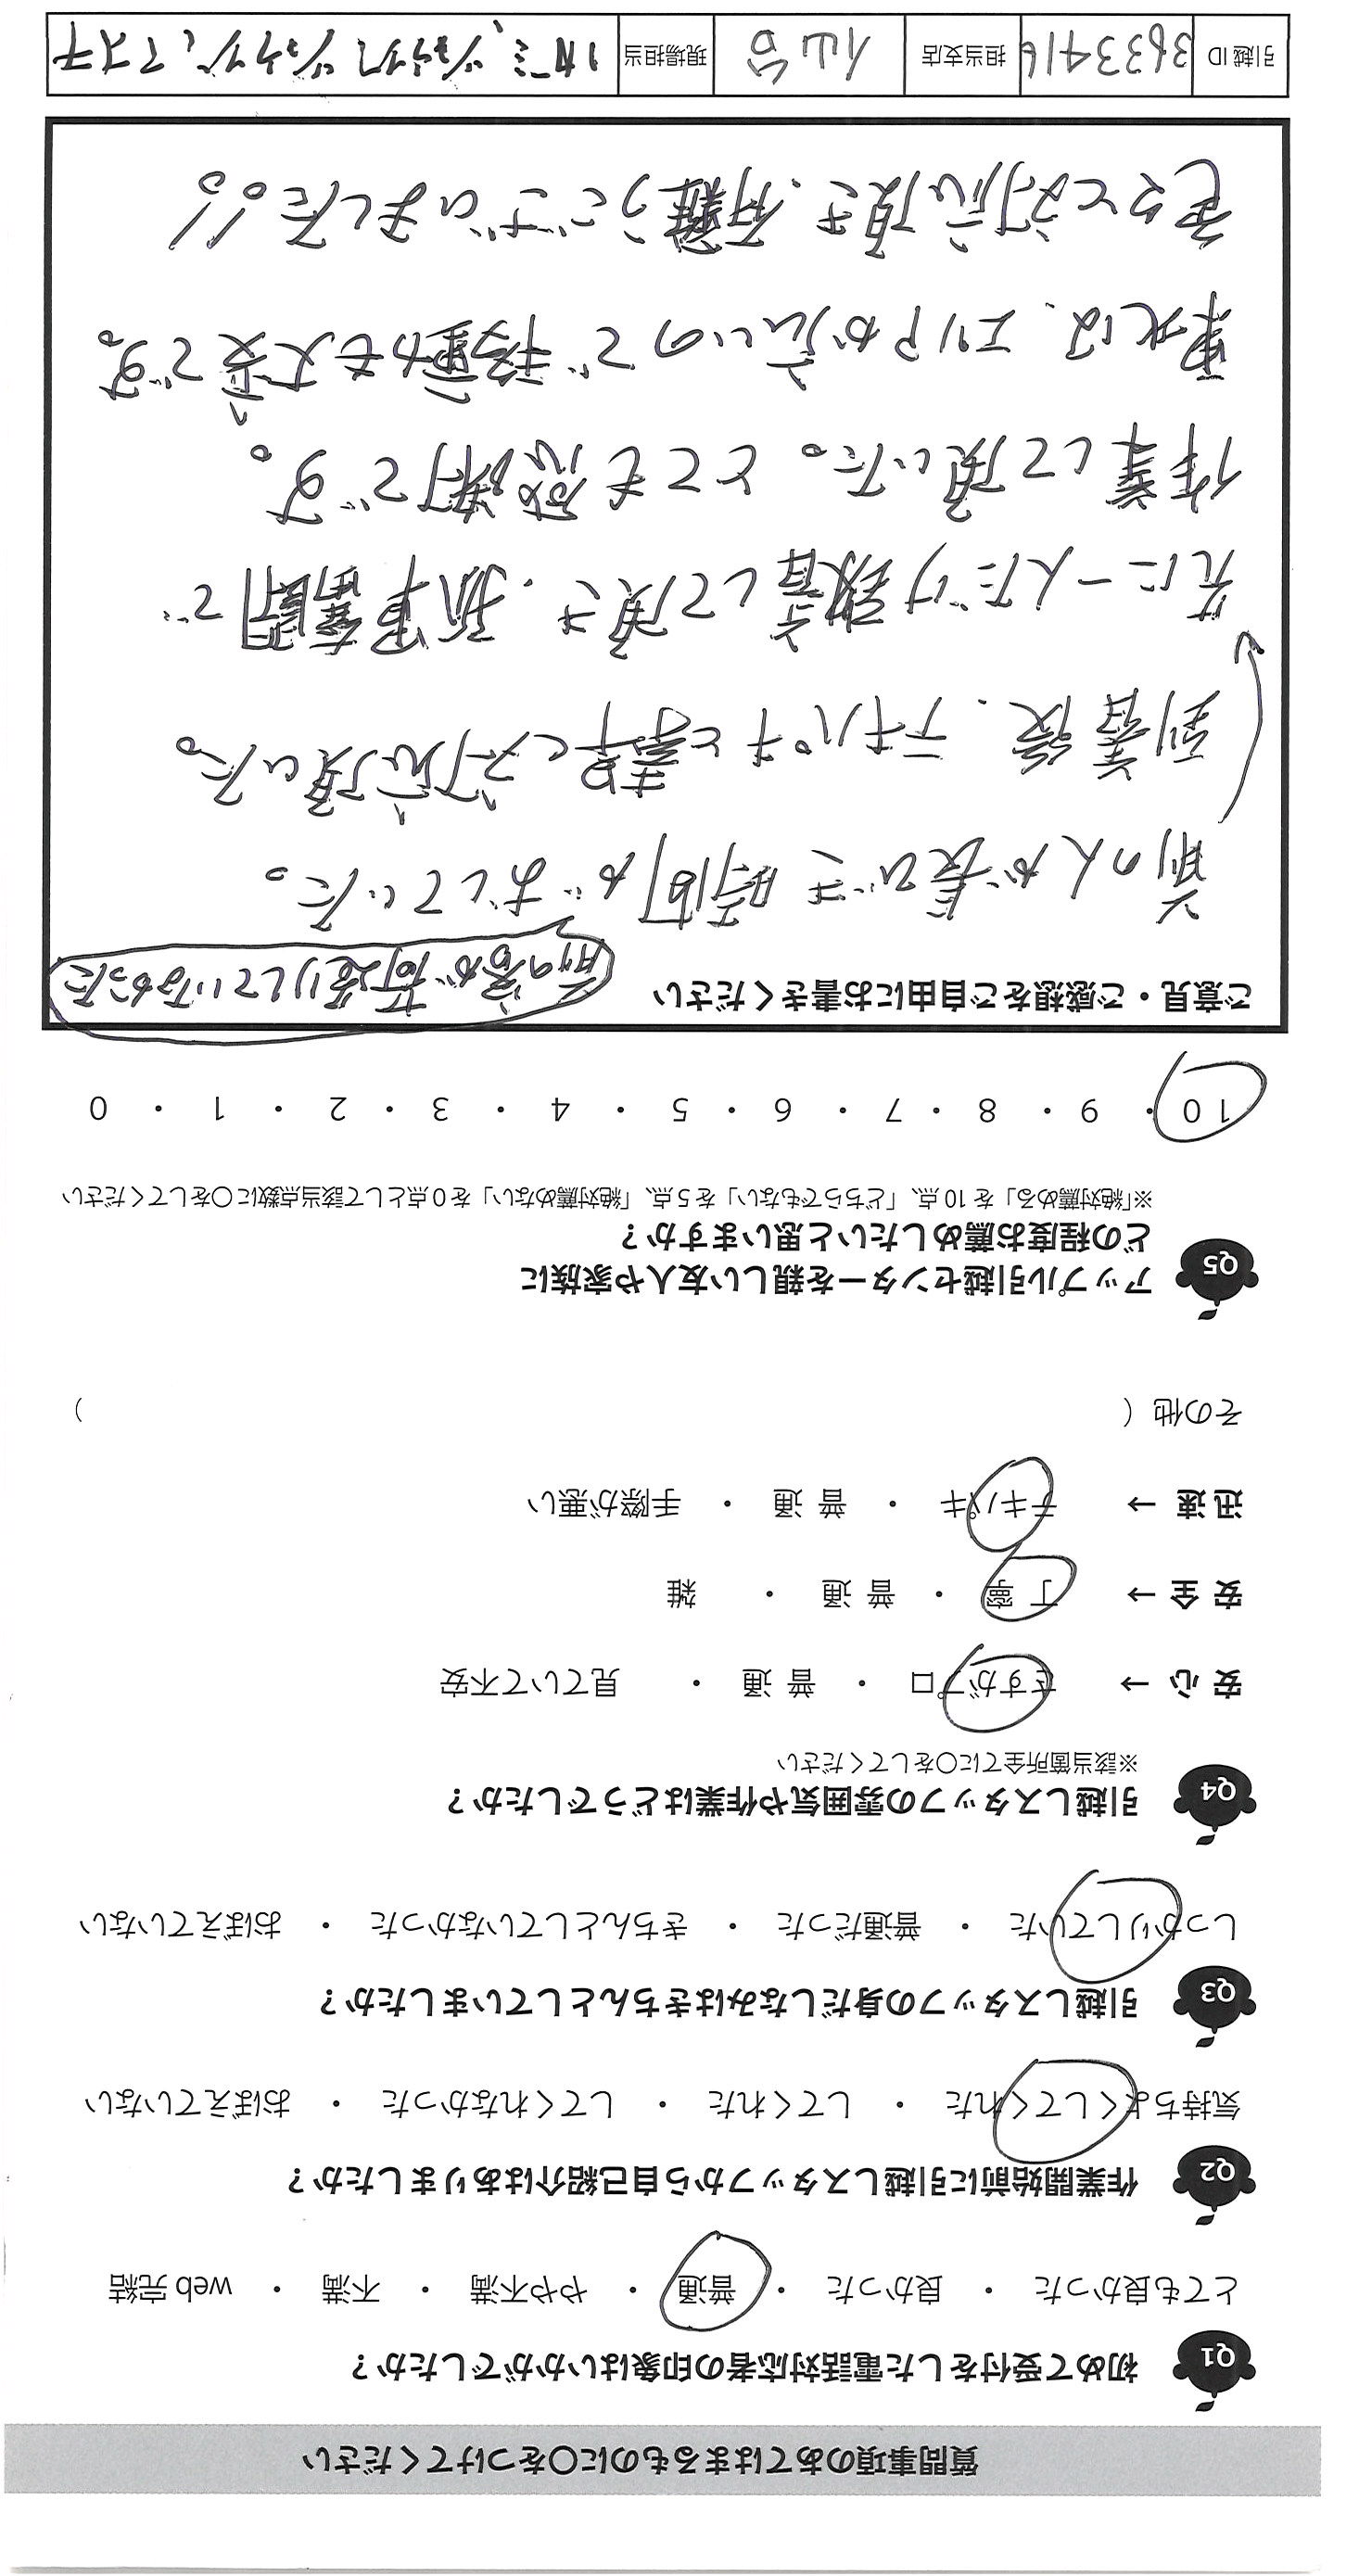 質問事項のあてはまるものに○をつけてください
Q1 初めて受付をした電話対応者の印象はいかがでしたか？
とても良かった ・ 良かった ・ 普通 ・ やや不満 ・ 不満 ・ web 完結
Q2 作業開始前に引越しスタッフから自己紹介はありましたか？
気持ちよくしてくれた ・ してくれた ・ してくれなかった ・ おぼえていない
Q3 引越しスタッフの身だしなみはきちんとしていましたか？
しっかりしていた ・ 普通だった ・ きちんとしていなかった ・ おぼえていない
Q4 引越しスタッフの雰囲気や作業はどうでしたか？
※該当箇所全てに○をしてください
安 心 → さすがプロ ・ 普 通 ・ 見ていて不安
安 全 → 丁 寧 ・ 普 通 ・ 雑
迅 速 → テキパキ ・ 普 通 ・ 手際が悪い
その他（ ）
Q5 アップル引越センターを親しい友人や家族に
どの程度お薦めしたいと思いますか？
※「絶対薦める」を 10 点、「どちらでもない」を 5 点、「絶対薦めない」を 0 点として該当点数に○をしてください
10 ・ 9 ・ 8 ・ 7 ・ 6 ・ 5 ・ 4 ・ 3 ・ 2 ・ 1 ・ 0
ご意見・ご感想をご自由にお書きください
前の客が荷造りしていなかった
前の人が長びき時間がおしていた。
到着後、テキパキと素早く対応頂いた。
先に一人だけ到着して頂き、孤軍奮闘で
作業して頂いた。とても感謝です。
東北は、エリアが広いので移動も大変です。
色々と対応頂き、有難うございました。!!
引越 ID 3633416 担当支店 仙台 現場担当